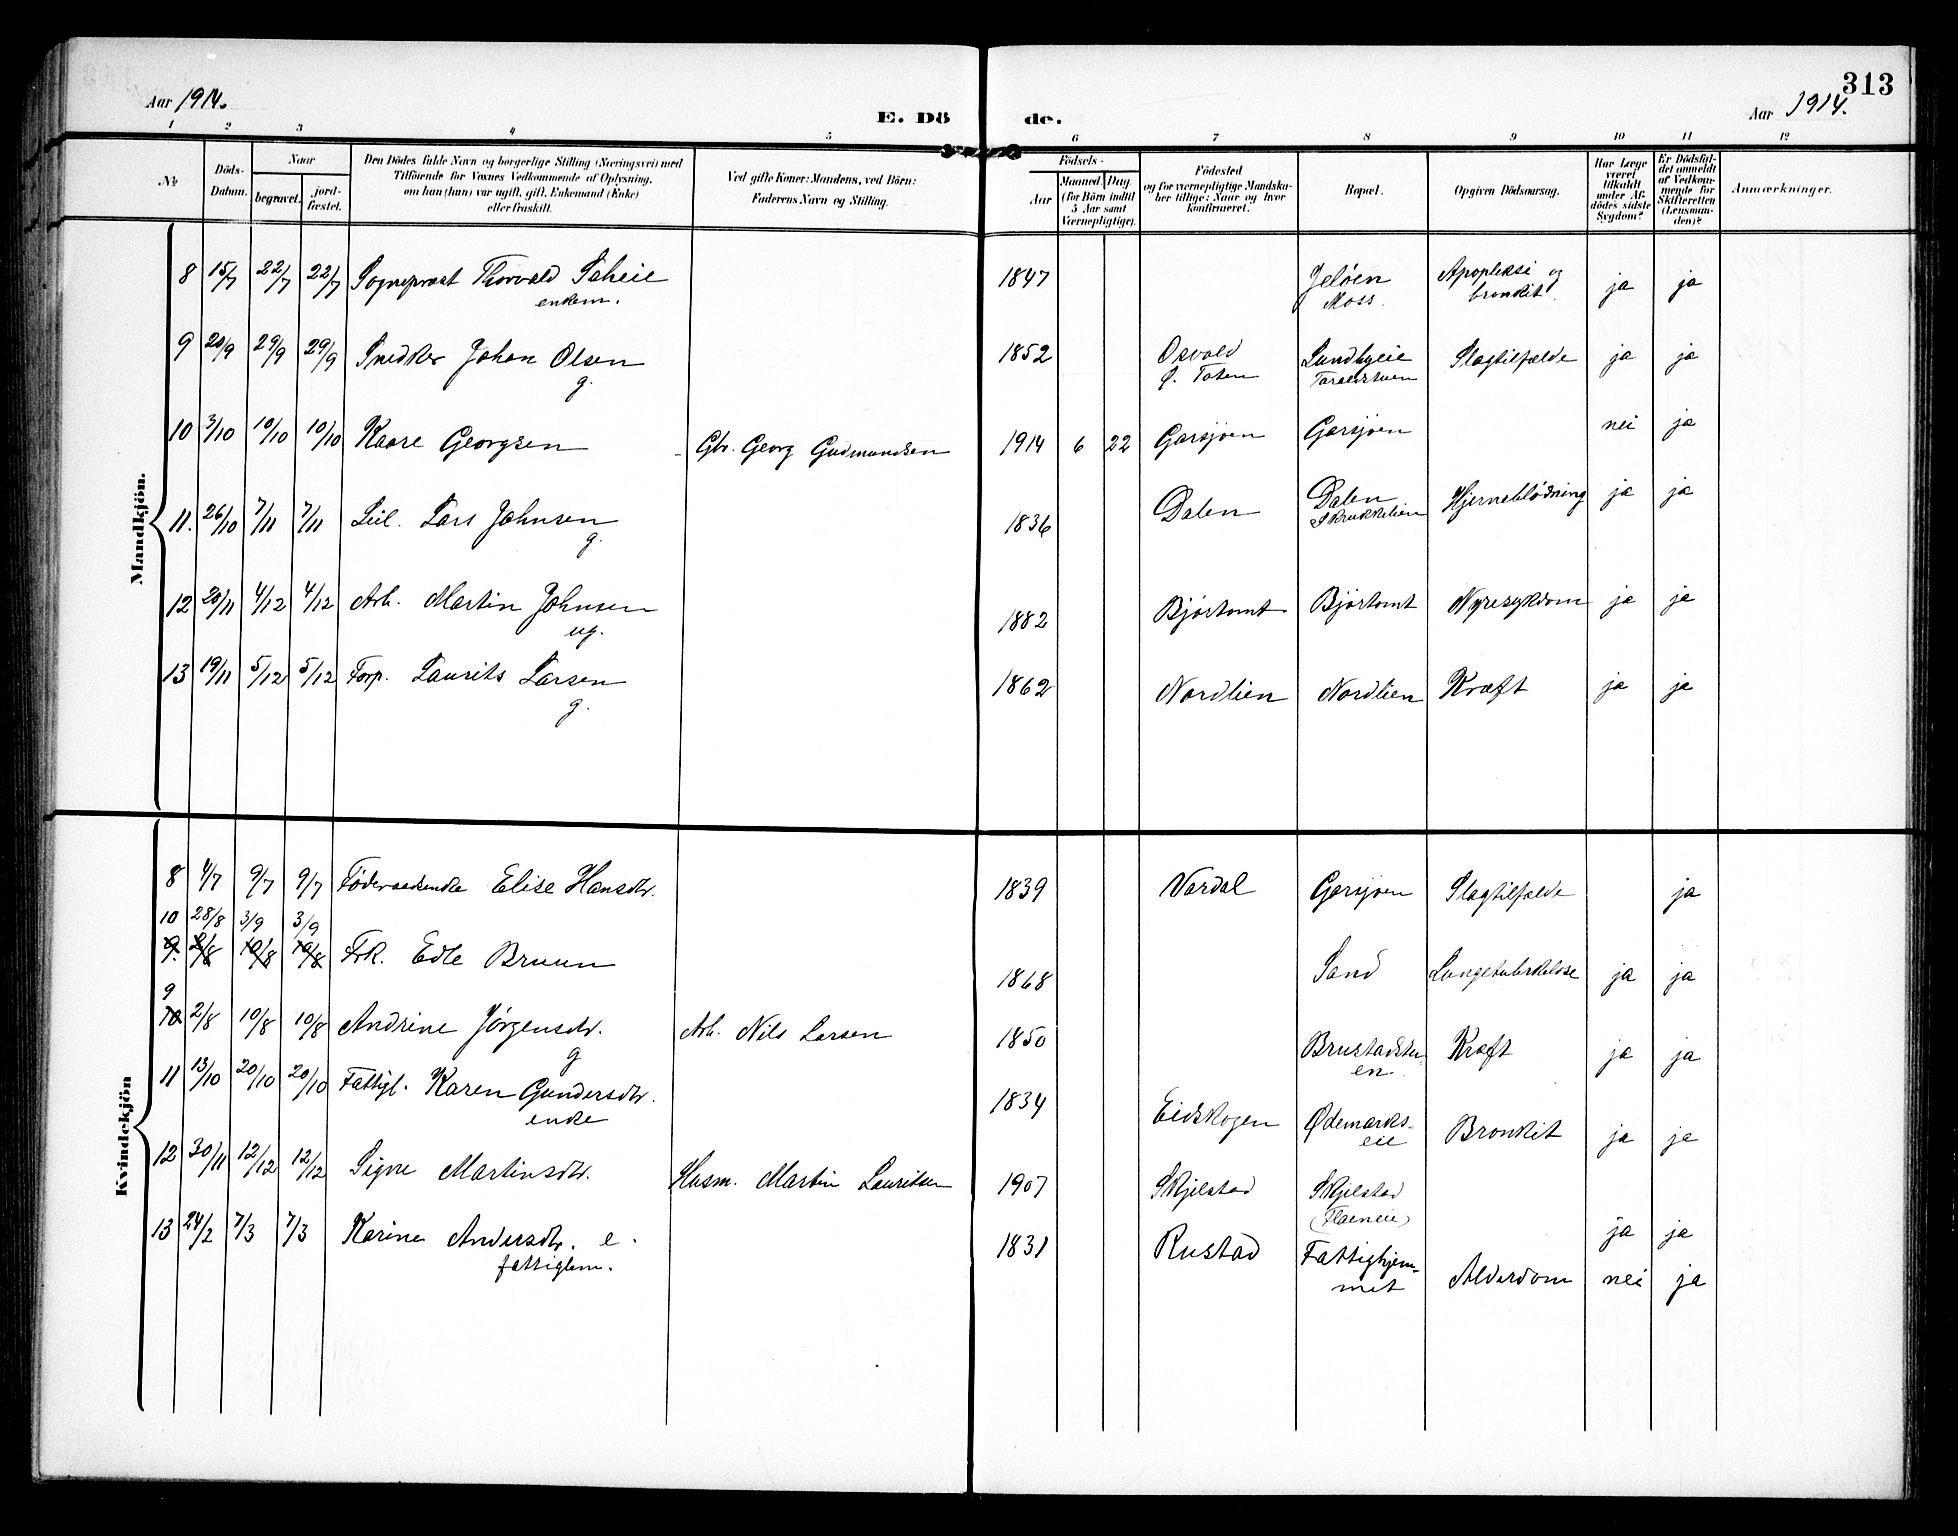 313
Aar 1914.
E. Dö de.
Aar 1914.
1 2 3 4 5 6 7 8 9 10 11 12
№
Döds-
Datum.
Naar
begravet.
jord-
fæstet.
Den Dödes fulde Navn og borgerlige Stilling (Næringsvei) med
Tilföiende for Voxnes Vedkommende af Oplysning,
om han (hun) var ugift, gift, Enkemand (Enke)
eller fraskilt.
Ved gifte Koner: Mandens, ved Börn:
Faderens Navn og Stilling.
Födsels-
Aar
Maaned Dag
(for Börn indtil
5 Aar samt
Værnepligtige).
Födested
og for værnepligtige Mandska-
ber tillige: Naar og hvor
konfirmeret.
Bopæl.
Opgiven Dödsaarsag.
Har Læge
været
tilkaldt
under Af-
dödes sidste
Sygdom?
Er Dödsfal-
det anmeldt
af Vedkom-
mende for
Skifteretten
(Lensman-
den)?
Anmærkninger.
Mandkjön.
8 15/7 22/7 22/7 Sogneprest Thorvald Scheie 1847 Jeløen Apopleksi og ja ja
enkem. Moss. bronkit.
9 20/9 29/9 29/9 Snedker Johan Olsen 1852 Osvold Sundbyeie Slagtilfælde ja ja
g. Ø. Toten
10 3/10 10/10 10/10 Kaare Georgsen Gbr. Georg Gudmundsen 1914 6 22 Garsjøen Garsjøen nei ja
11. 26/10 7/11 7/11 Lars Johnsen 1836 Dalen Dalen Hjerneblødning ja ja
g. Skrukkelien
12 20/11 4/12 4/12 Arb. Martin Johnsen 1882 Bjørtomt Bjørtomt Nyresykdom ja ja
ug.
13 19/11 5/12 5/12 Forp. Laurits Larsen 1862 Nordlien Nordlien Kræft ja ja
g.
Kvindekjön
8 4/7 9/7 9/7 Føderaadsenke Elise Hansdtr. 1839 Vardal Garsjøen Slagtilfælde ja
10 28/8 3/9 3/9
9. 2/8 10/8 10/8 Frk. Edle Bruun 1868 Sand Lungetuberkulose ja ja
9
10 2/8 10/8 10/8 Andrine Jørgensdtr. Arb. Nils Larsen 1850 Brustadstu- Kræft ja ja
g en.
11 13/10 20/10 20/10 Fattigl. Karen Gundersdtr. 1834 Eidskogen Ødemarks- Bronkit ja ja
enke eie
12 30/11 12/12 12/12 Signe Martinsdtr. Husm. Martin Lauritsen 1907 Skjelstad Skjelstad ja ja
13 24/2 7/3 7/3 Karine Andersdtr. e. 1831 Rustad Fattighjem- Alderdom nei ja
fattiglem. met